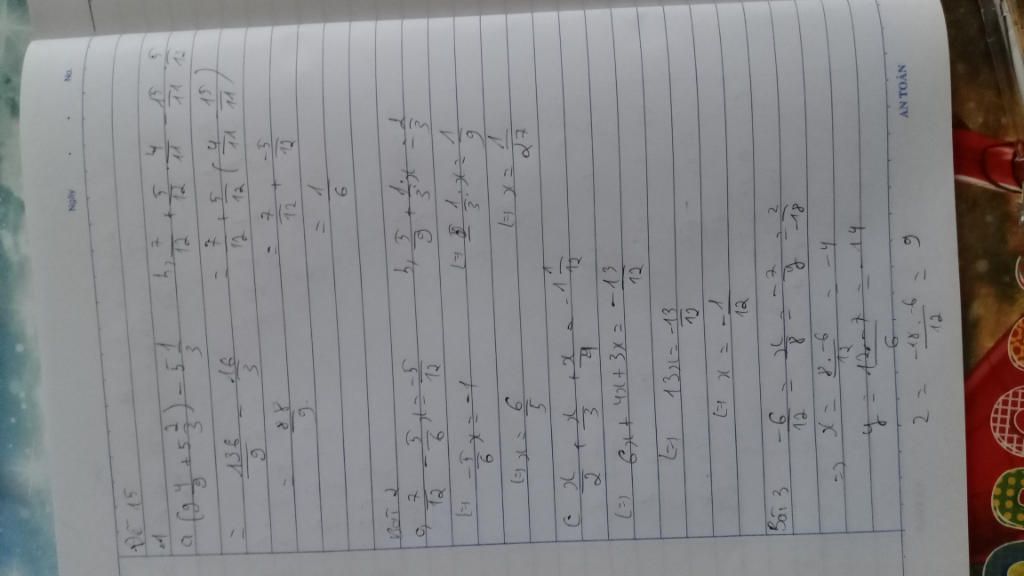 NGÀY
No.
Đề 15
1
a (9 4/9 + 5 2/3) - 5 1/3
= 136/9 - 16/3
= 88/9
b, 7/12 + 5/12 . 4/11 - 15/11 . 5/12
= 7/12 + 5/12 (4/11 - 15/11)
= 7/12 + -5/12
= 1/6
Bài 2
a, 7/12 - 5/6 x = -5/12
(=) -5/6 x = -1
(=) x = 6/5
b, 5/9 + 1/3 . x = 1/3
(=) 1/3 . x = 1/9
(=) x = 1/27
c x/2 + x/3 + x/4 = -1 1/12
(=) 6x + 4x + 3x = -13/12
(=) 13x = -13/12
(=) x = -1/12
Bài 3 -6/12 = x/8 = -7/y = z/-18
=) x = 8.-6/12 = -4
y = 12.-7/6 = -14
z = -18.-6/12 = 9
AN TOÀN